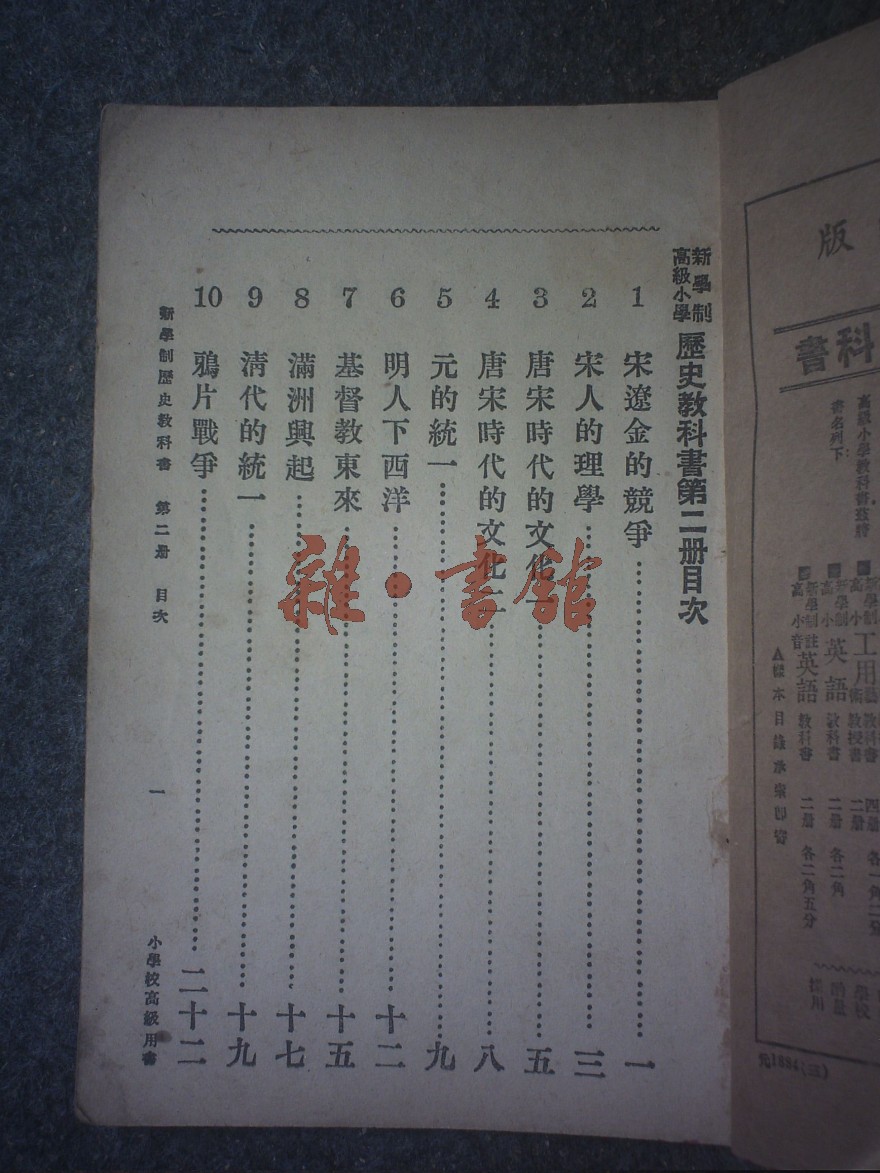 新學制
高級小學
歷史敎科書第二册目次
1 宋遼金的競爭 一
2 宋人的理學 三
3 唐宋時代的文化一 五
4 唐宋時代的文化二 八
5 元的統一 九
6 明人下西洋 十二
7 基督敎東來 十五
8 滿洲興起 十七
9 淸代的統一 十九
10 鴉片戰爭 二十二
新學制歷史敎科書 第二册 目次
一
小學校高級用書
雜·書館
版
科書
高級小學敎科書
書名列下
新學制
高小
工用藝術
敎科書
敎授書
四册
二册
新學制
高小
英語
敎科書
二册
各二角
新學制
高小
註音
英語
敎科書
二册
各二角五分
學校
採用